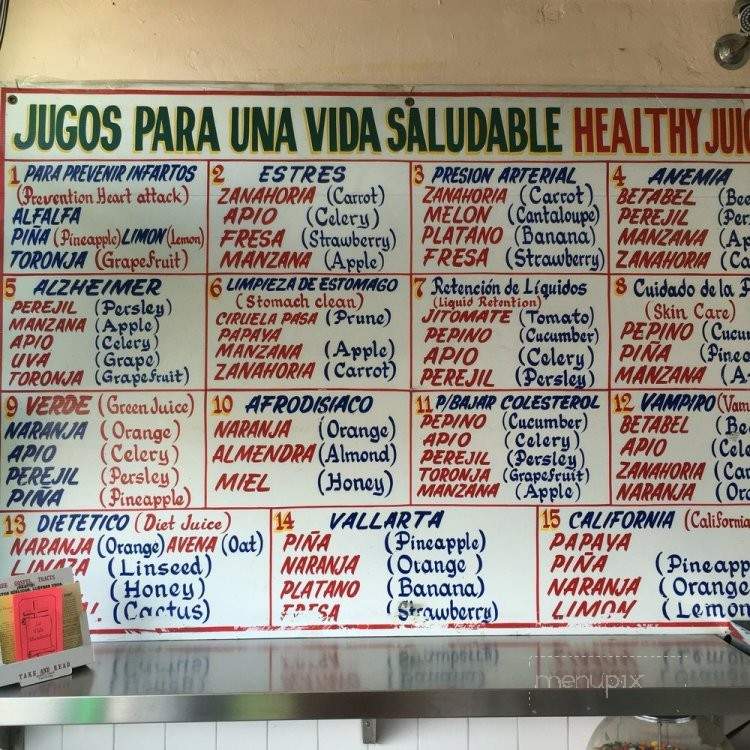 JUGOS PARA UNA VIDA SALUDABLE HEALTHY JUIC
1 PARA PREVENIR INFARTOS
(Prevention Heart attack)
ALFALFA
PIÑA (Pineapple) LIMON (Lemon)
TORONJA (Grapefruit)
2 ESTRES
ZANAHORIA (Carrot)
APIO (Celery)
FRESA (Strawberry)
MANZANA (Apple)
3 PRESION ARTERIAL
ZANAHORIA (Carrot)
MELON (Cantaloupe)
PLATANO (Banana)
FRESA (Strawberry)
4 ANEMIA
BETABEL (Bee
PEREJIL (Per
MANZANA (Ap
ZANAHORIA (Ca
5 ALZHEIMER
PEREJIL (Persley)
MANZANA (Apple)
APIO (Celery)
UVA (Grape)
TORONJA (Grapefruit)
6 LIMPIEZA DE ESTOMAGO
(Stomach clean)
CIRUELA PASA (Prune)
PAPAYA
MANZANA (Apple)
ZANAHORIA (Carrot)
7 Retención de Líquidos
(Liquid Retention)
JITOMATE (Tomato)
PEPINO (Cucumber)
APIO (Celery)
PEREJIL (Persley)
8 Cuidado de la P
(Skin Care)
PEPINO (Cucum
PIÑA (Pinea
MANZANA (A
9 VERDE (Green Juice)
NARANJA (Orange)
APIO (Celery)
PEREJIL (Persley)
PIÑA (Pineapple)
10 AFRODISIACO
NARANJA (Orange)
ALMENDRA (Almond)
MIEL (Honey)
11 P/BAJAR COLESTEROL
PEPINO (Cucumber)
APIO (Celery)
PEREJIL (Persley)
TORONJA (Grapefruit)
MANZANA (Apple)
12 VAMPIRO (Vam
BETABEL (Bee
APIO (Cele
ZANAHORIA (Car
NARANJA (Ora
13 DIETETICO (Diet Juice)
NARANJA (Orange) AVENA (Oat)
LINAZA (Linseed)
(Honey)
(Cactus)
14 VALLARTA
PIÑA (Pineapple)
NARANJA (Orange)
PLATANO (Banana)
FRESA (Strawberry)
15 CALIFORNIA (California
PAPAYA
PIÑA (Pineapp
NARANJA (Orange
LIMON (Lemon
GOSPEL TRACTS
TAKE AND READ
menupix